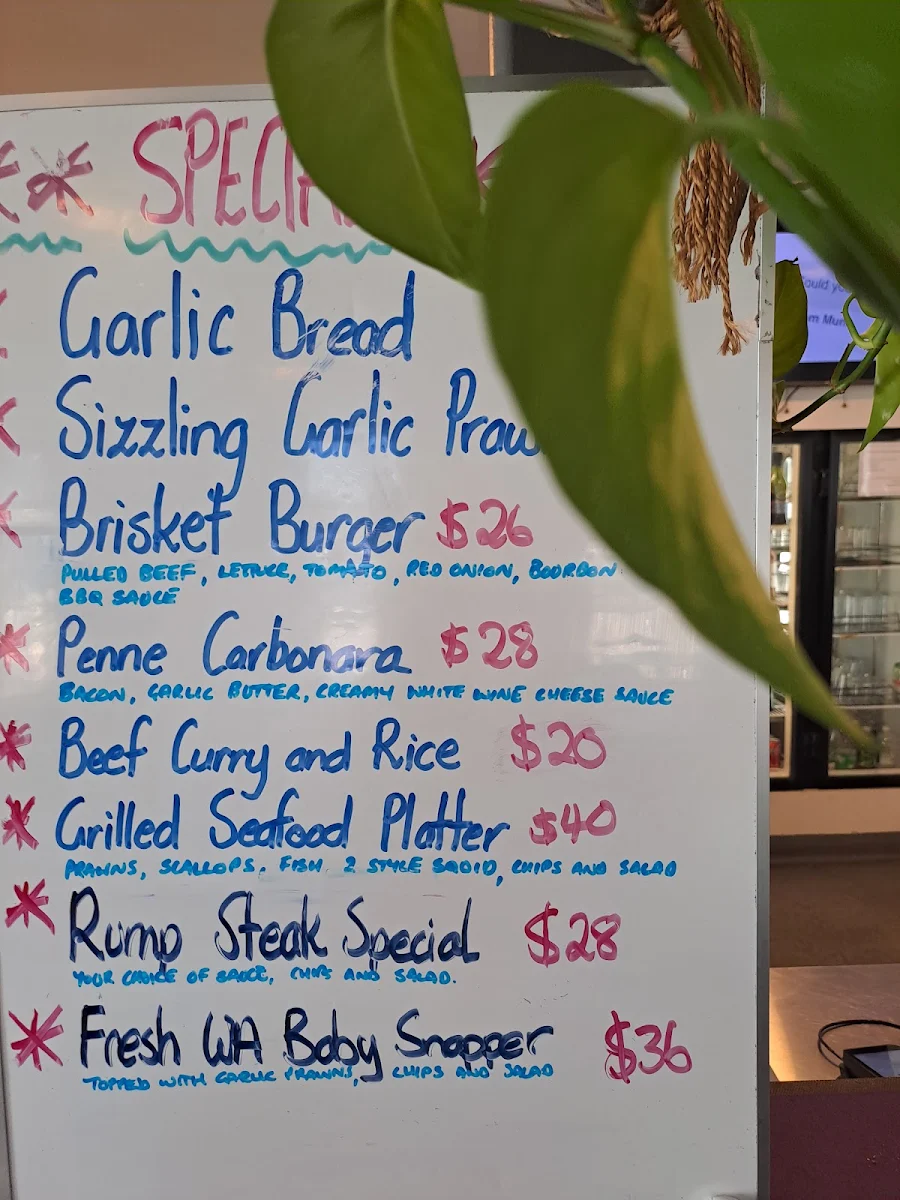 SPECIA
Garlic Bread
Sizzling Garlic Praw
Brisket Burger $26
PULLED BEEF, LETTUCE, TOMATO, RED ONION, BOURBON
BBQ SAUCE
Penne Carbonara $28
BACON, GARLIC BUTTER, CREAMY WHITE WINE CHEESE SAUCE
Beef Curry and Rice $20
Grilled Seafood Platter $40
PRAWNS, SCALLOPS, FISH 2 STYLE SQUID, CHIPS AND SALAD
Rump Steak Special $28
YOUR CHOICE OF SAUCE, CHIPS AND SALAD.
Fresh WA Baby Snapper $36
TOPPED WITH GARLIC PRAWNS, CHIPS AND SALAD